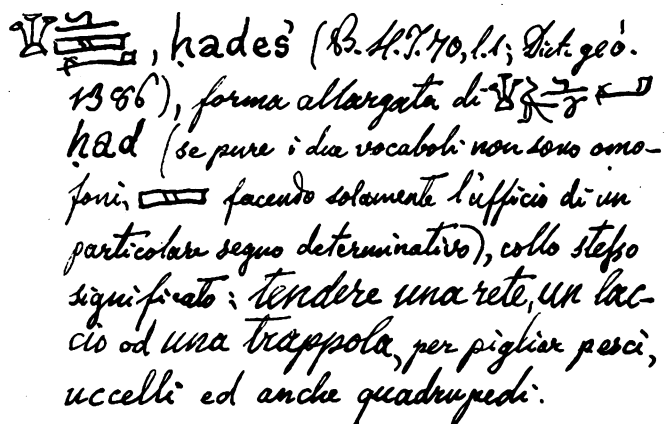 , ḥades (B. H. J. 70, l. 1; Dict. geó.
1386), forma allargata di
ḥad (se pure i due vocaboli non sono omo-
foni, facendo solamente l'ufficio di un
particolare segno determinativo), collo stesso
significato: tendere una rete, un lac-
cio od una trappola, per pigliar pesci,
uccelli ed anche quadrupedi.